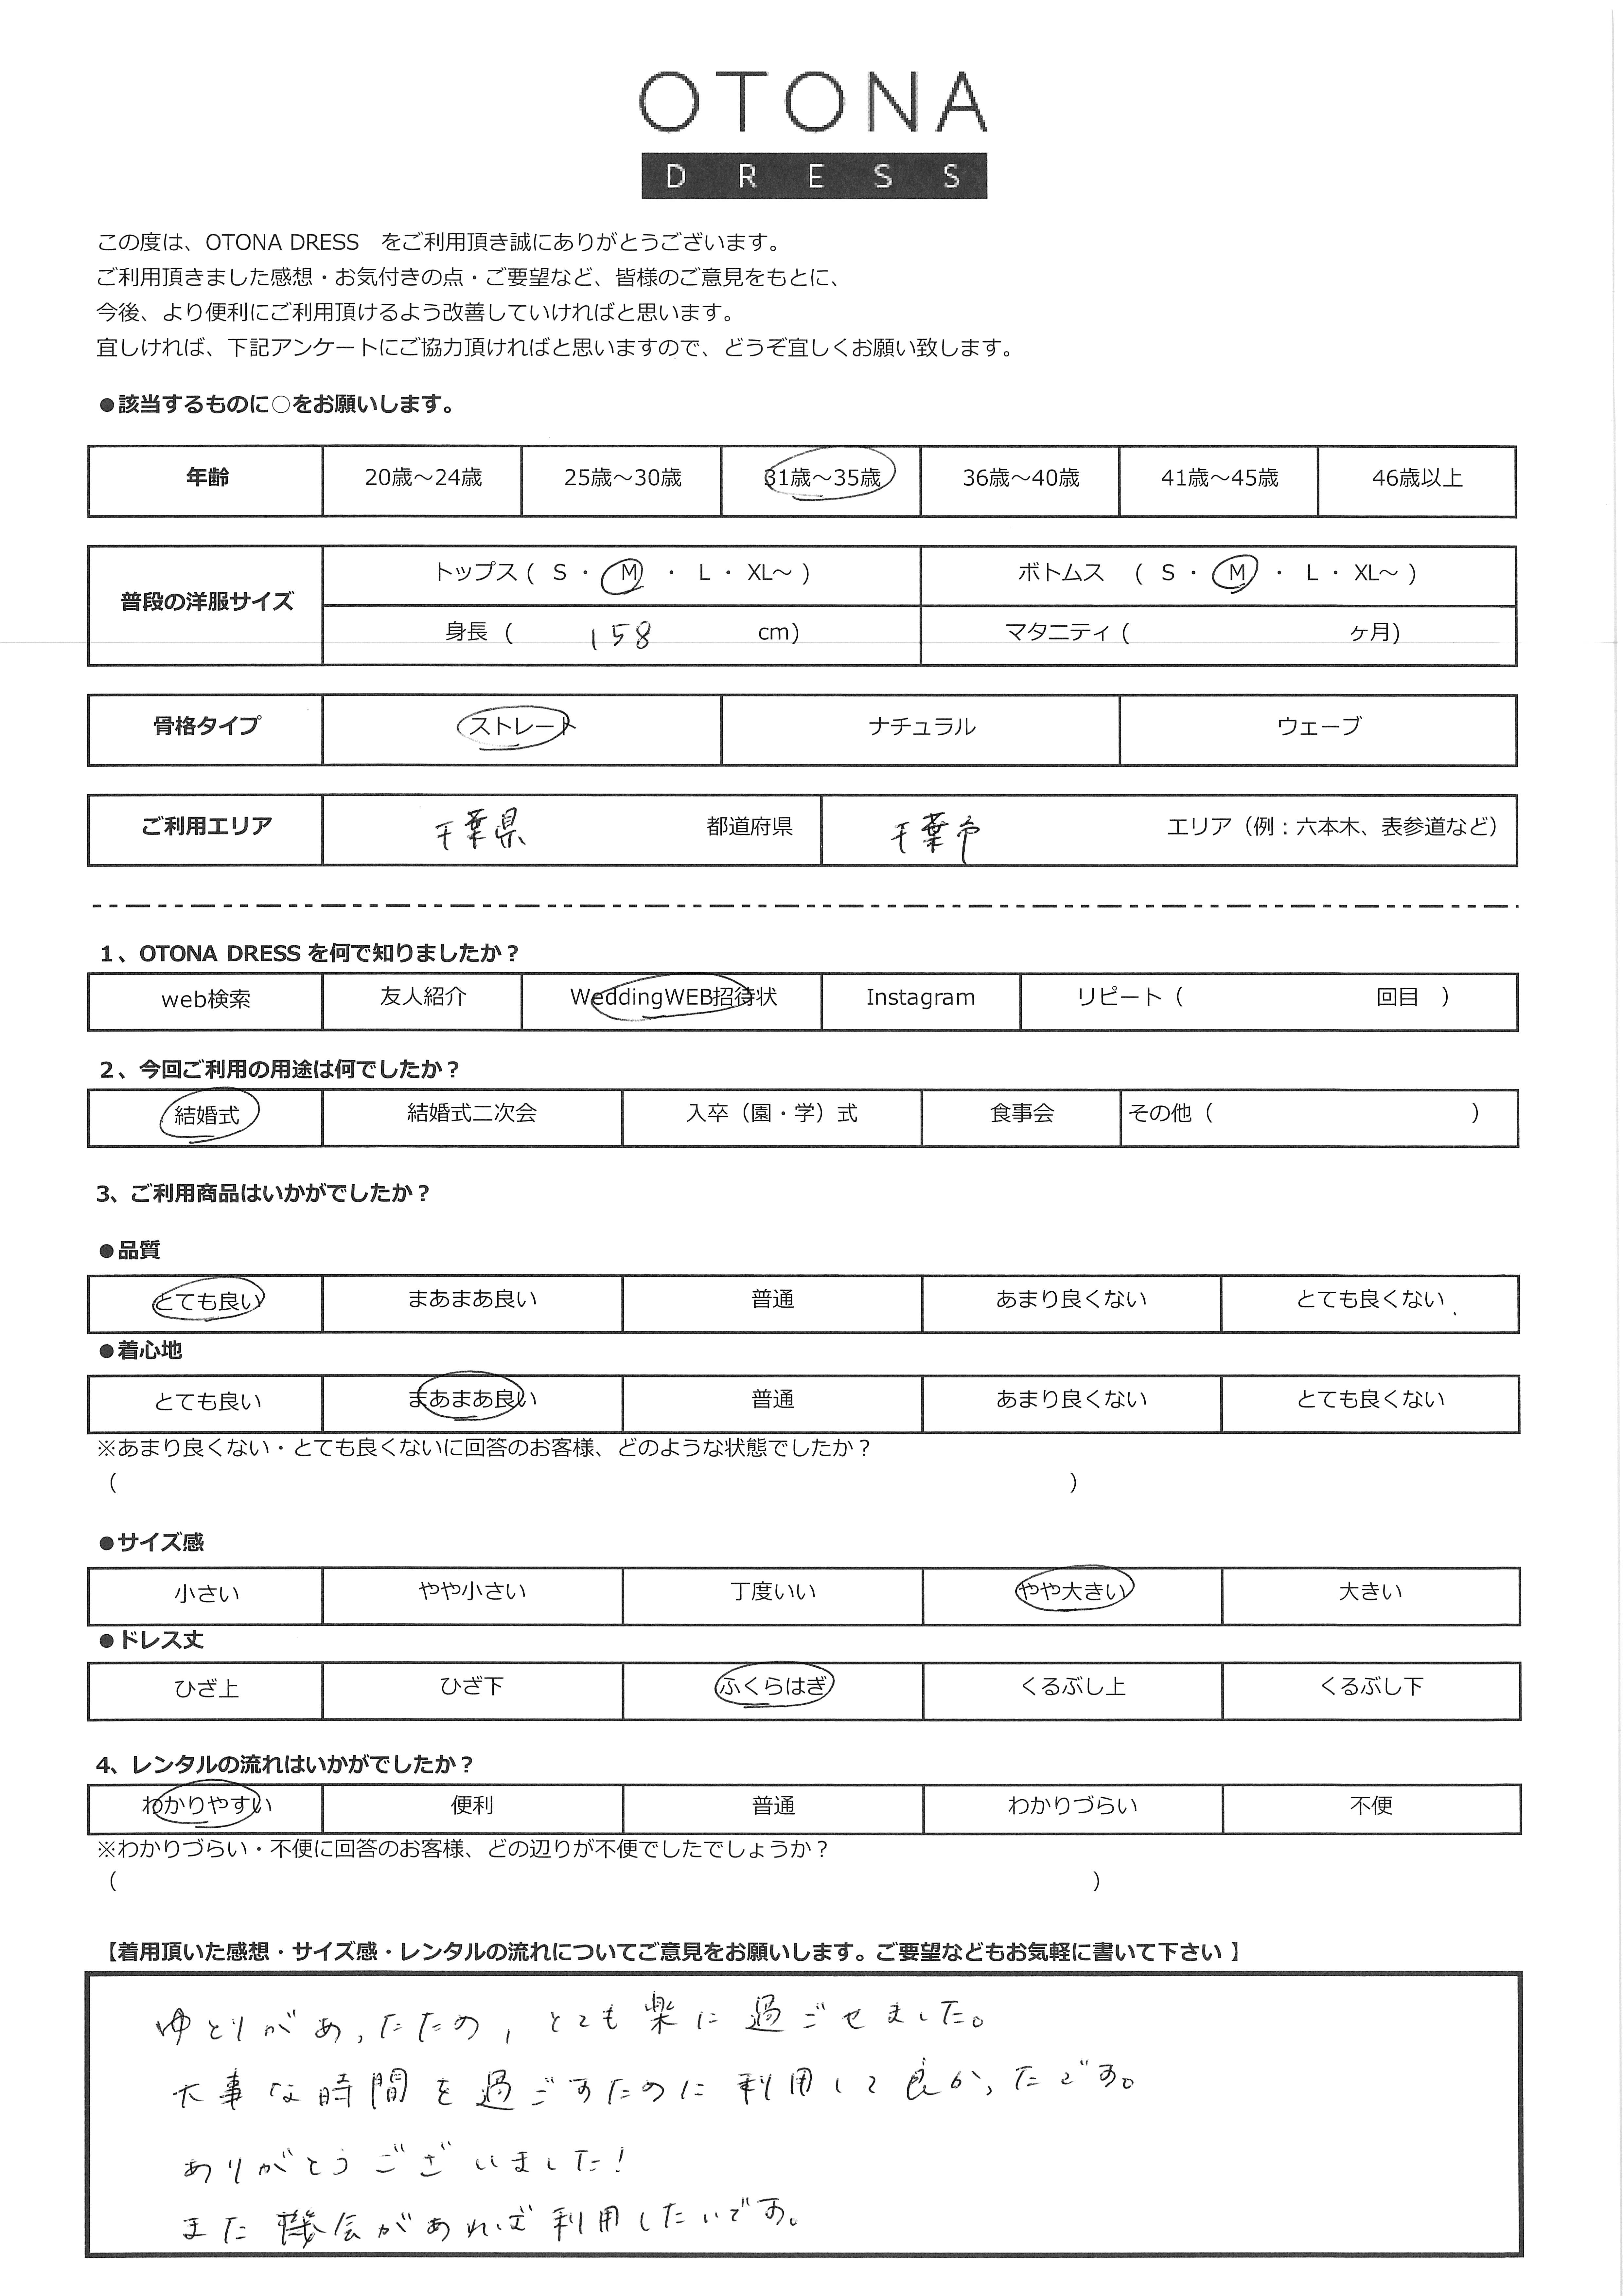 OTONA
DRESS
この度は、OTONA DRESS をご利用頂き誠にありがとうございます。
ご利用頂きました感想・お気付きの点・ご要望など、皆様のご意見をもとに、
今後、より便利にご利用頂けるよう改善していければと思います。
宜しければ、下記アンケートにご協力頂ければと思いますので、どうぞ宜しくお願い致します。
●該当するものに○をお願いします。
年齢 20歳～24歳 25歳～30歳 31歳～35歳 36歳～40歳 41歳～45歳 46歳以上
普段の洋服サイズ
トップス ( S ・ M ・ L ・ XL～ ) ボトムス ( S ・ M ・ L ・ XL～ )
身長 ( 158 cm) マタニティ ( ヶ月)
骨格タイプ ストレート ナチュラル ウェーブ
ご利用エリア 千葉県 都道府県 千葉市 エリア（例：六本木、表参道など）
1、OTONA DRESS を何で知りましたか？
web検索 友人紹介 WeddingWEB招待状 Instagram リピート（ 回目 ）
2、今回ご利用の用途は何でしたか？
結婚式 結婚式二次会 入卒（園・学）式 食事会 その他（ ）
3、ご利用商品はいかがでしたか？
●品質
とても良い まあまあ良い 普通 あまり良くない とても良くない
●着心地
とても良い まあまあ良い 普通 あまり良くない とても良くない
※あまり良くない・とても良くないに回答のお客様、どのような状態でしたか？
（ ）
●サイズ感
小さい やや小さい 丁度いい やや大きい 大きい
●ドレス丈
ひざ上 ひざ下 ふくらはぎ くるぶし上 くるぶし下
4、レンタルの流れはいかがでしたか？
わかりやすい 便利 普通 わかりづらい 不便
※わかりづらい・不便に回答のお客様、どの辺りが不便でしたでしょうか？
（ ）
【着用頂いた感想・サイズ感・レンタルの流れについてご意見をお願いします。ご要望などもお気軽に書いて下さい 】
ゆとりがあったため，とても楽に過ごせました。
大事な時間を過ごすために利用して良かったです。
ありがとうございました！
また機会があれば利用したいです。